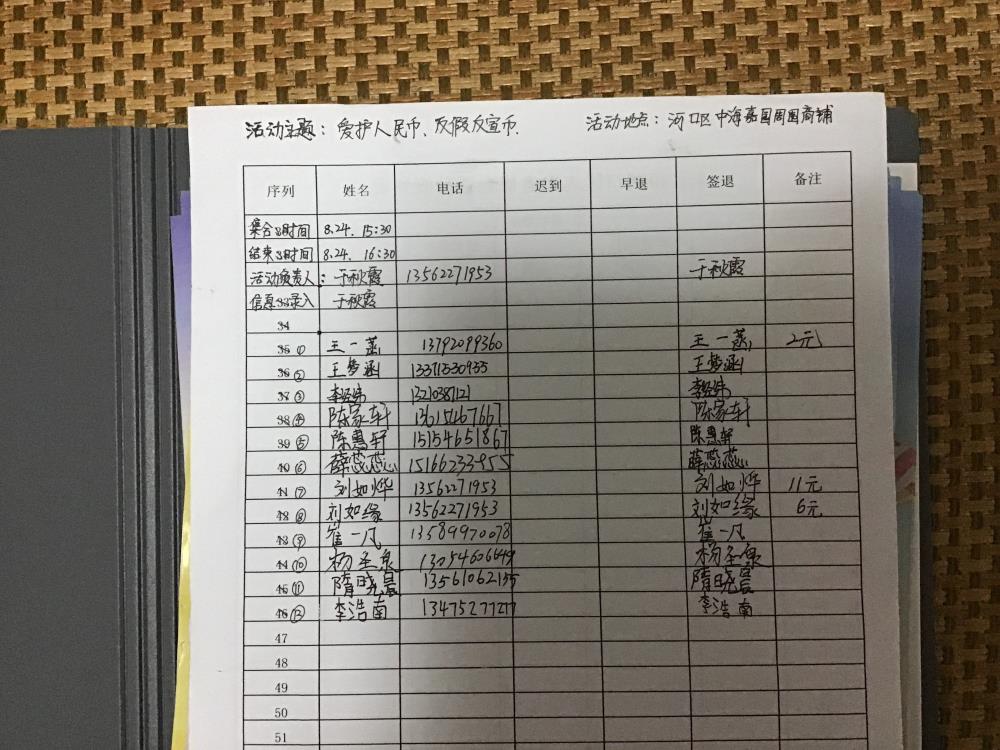 活动主题：爱护人民币、反假反宣币.
活动地点：河口区中海嘉园周围商铺
序列 姓名 电话 迟到 早退 签退 备注
集合时间 8.24. 15:30
结束时间 8.24. 16:30
活动负责人：于秋霞 13562271953 于秋霞
信息录入 于秋霞
34
35 ① 王一 13792099360 王一 2元
36 ② 王梦涵 13371530935 王梦涵
37 ③ 李经纬 13210381121 李经纬
38 ④ 陈家轩 13615467667 陈家轩
39 ⑤ 陈惠轩 15154651867 陈惠轩
40 ⑥ 薛蕊蕊 15166233955 薛蕊蕊
41 ⑦ 刘如烨 13562271953 刘如烨 11元
42 ⑧ 刘如缘 13562271953 刘如缘 6元
43 ⑨ 崔一凡 13589970078 崔一凡
44 ⑩ 杨圣泉 杨圣泉
45 ⑪ 隋晓晨 隋晓晨
46 ⑫ 李浩南 13475277217 李浩南
47
48
49
50
51